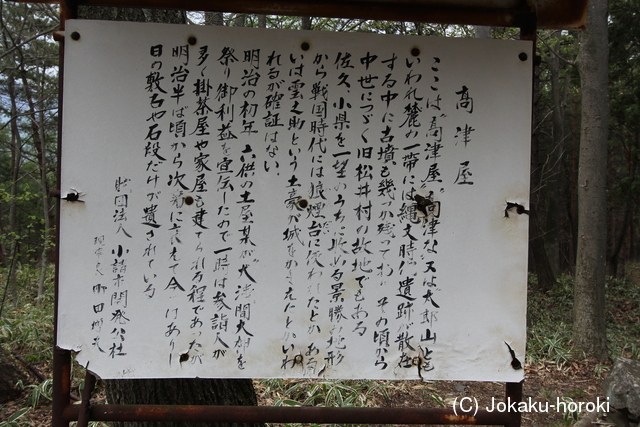 高津屋
ここは"高津屋""高津谷"又は太郎山とも
いわれ麓の一帯には縄文時代遺跡が散在
する中に古墳も幾つか残っており その頃から
中世につづく旧松井村の故地でもある
佐久、小県を一望のうちに収める景勝の地形
から戦国時代には狼煙台に使われたとか
いは雲之助という土豪が城をかまえたとかいわ
れるが確証はない
明治の初年 六供の土屋某が"大浅間大神"を
祭り御利益を宣伝したので一時は参詣人が
多く掛茶屋や家屋も建てられる程であったが
明治半ば頃から次第に衰えて今は
日の敷石や石段だけが遺されている
財団法人 小諸市開発公社